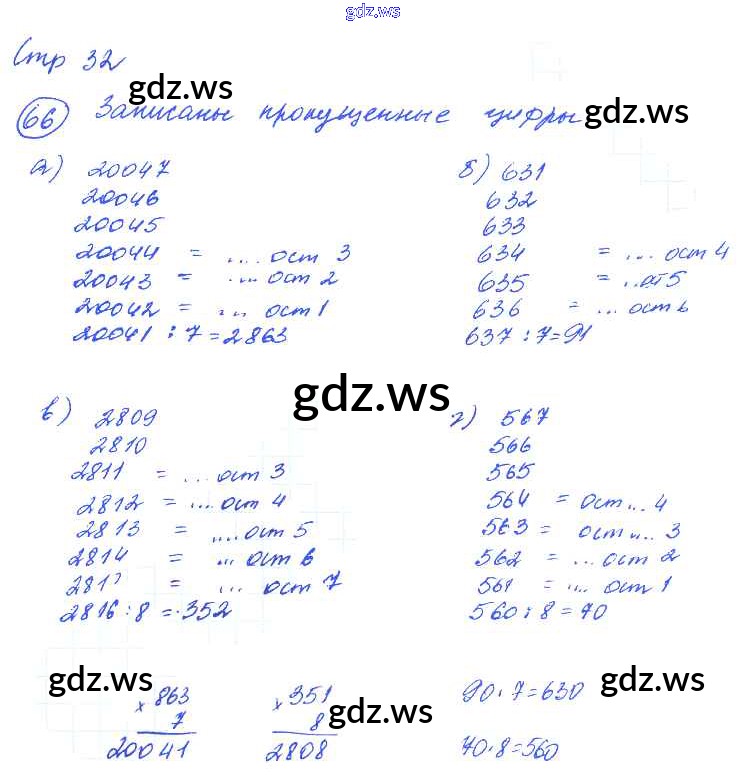 gdz.ws
Стр 32
gdz.ws
66 Записаны пропущенные цифры
gdz.ws
а) 20047
20046
20045
20044 = .... ост 3
20043 = .... ост 2
20042 = ... ост 1
20041 : 7 = 2863
б) 631
632
633
634 = .... ост 4
635 = ...ост 5
636 = ... ост 6
637 : 7 = 91
gdz.ws
в) 2809
2810
2811 = ... ост 3
2812 = .... ост 4
2813 = .... ост 5
2814 = ... ост 6
281 = ... ост 7
2816 : 8 = 352
г) 567
566
565
564 = ост... 4
563 = ост... 3
562 = ... ост 2
561 = ... ост 1
560 : 8 = 70
gdz.ws
× 863
7
20041
× 351
8
2808
gdz.ws
90 · 7 = 630
gdz.ws
70 · 8 = 560